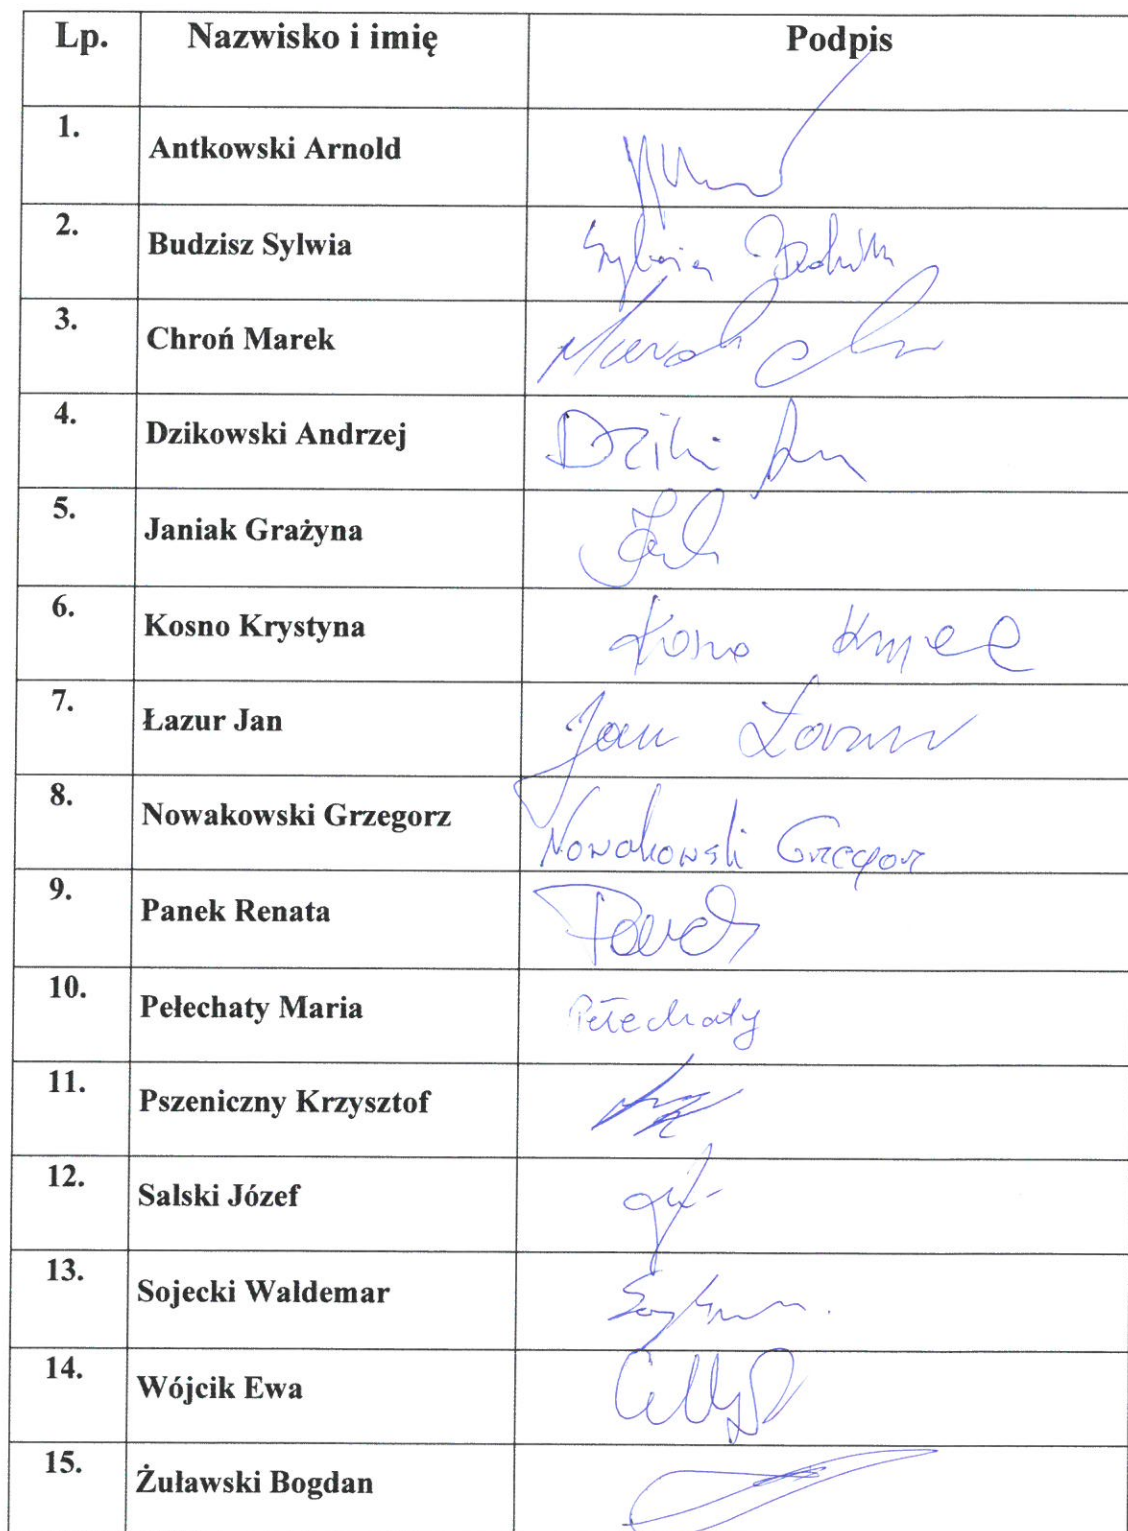 Lp. Nazwisko i imię Podpis
1. Antkowski Arnold
2. Budzisz Sylwia Sylwia
3. Chroń Marek Marek
4. Dzikowski Andrzej
5. Janiak Grażyna
6. Kosno Krystyna Kosno
7. Łazur Jan Jan Łazur
8. Nowakowski Grzegorz Nowakowski Grzegorz
9. Panek Renata Panek
10. Pełechaty Maria Pełechaty
11. Pszeniczny Krzysztof
12. Salski Józef
13. Sojecki Waldemar
14. Wójcik Ewa
15. Żuławski Bogdan